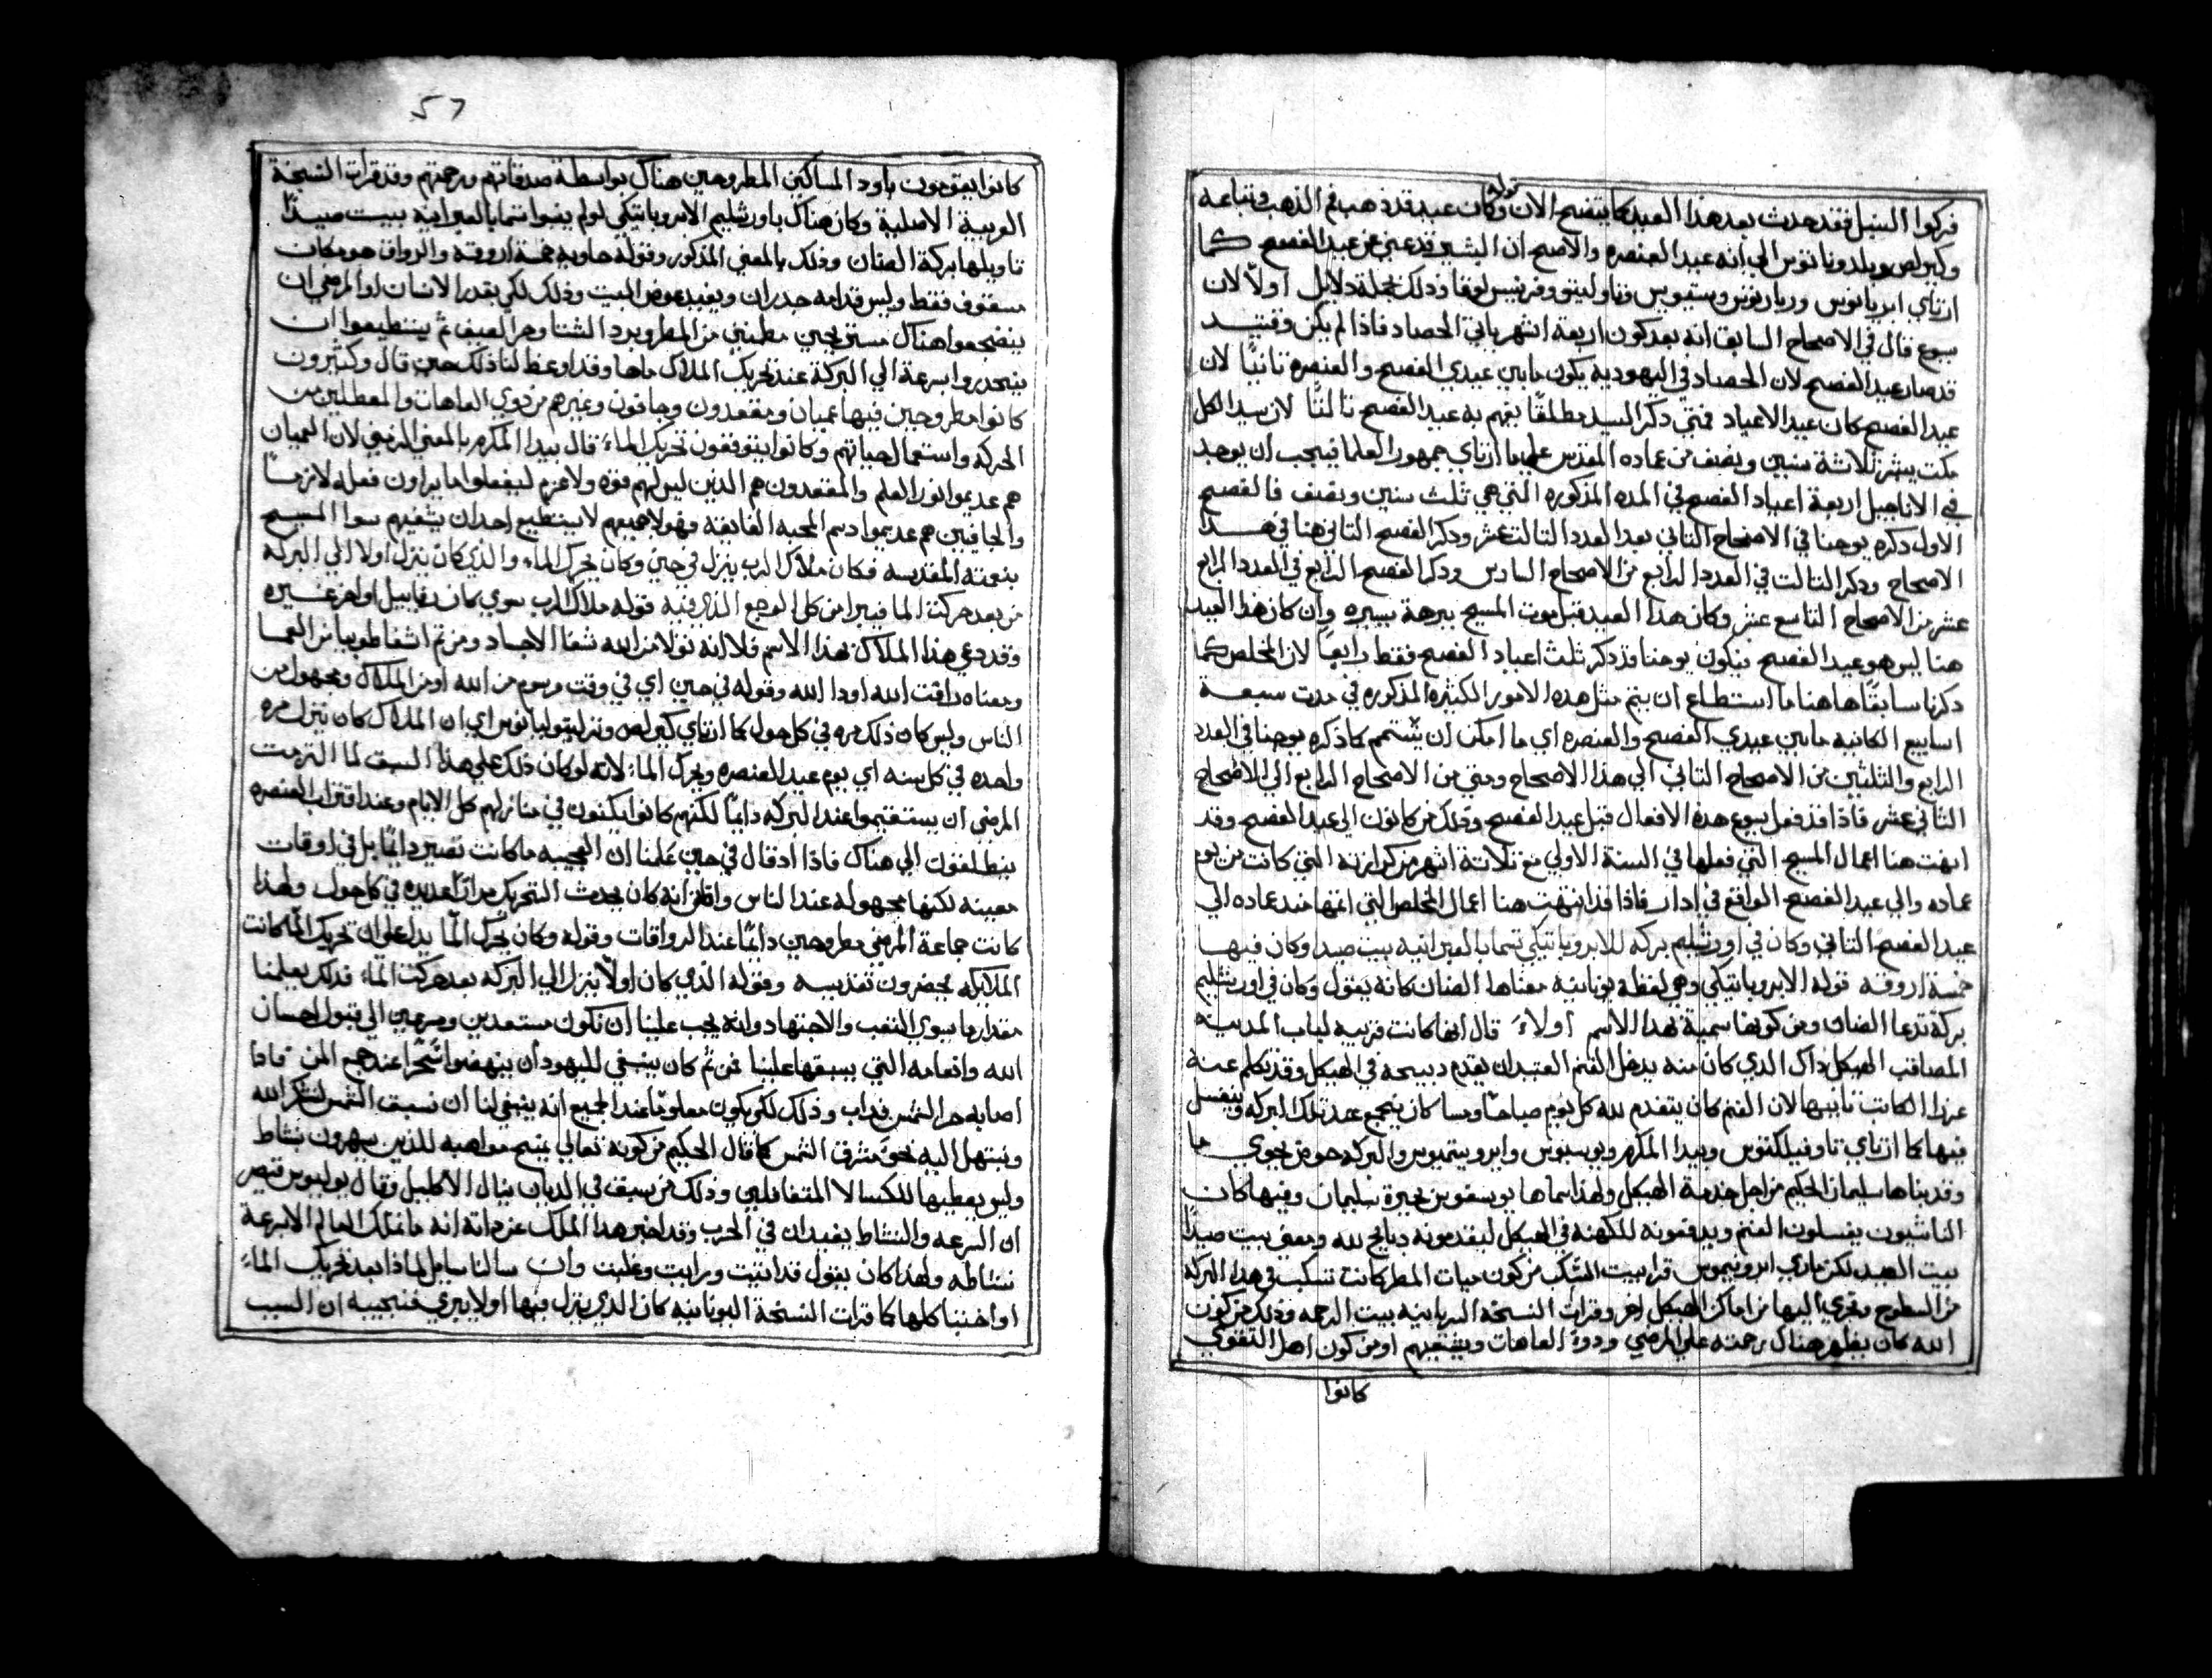 فركوا السنبل فقد حدث بعد هذا العيد كما يتضح الان قوله وكان عيد قد ذهب فم الذهب وتباعه
وكيرلص وبلدونانوس الي انه عيد العنصره والاصح ان البشير قد عني عن عيد الفصح كما
ارتاي ايريانوس وتاولبتو وفرنسيس لوقا وذلك بجملة دلايل اولاً لان
يسوع قال في الاصحاح السابق انه بعد كون اربعة اشهر ياتي الحصاد فاذا لم يكن وقتيد
قد صار عيد الفصح لان الحصاد في اليهودية يكون مابين عيدي الفصح والعنصره ثانيًا لان
عيد الفصح كان عيد الاعياد فمتي ذكر السيد مطلقًا يفهم به عيد الفصح ثالثًا لان سيد الكل
مكت يبشر ثلاثة سنين ونصف من عماده المقدس علي ما ارتاي جمهور العلما فيجب ان يوجد
في الاناجيل اربعة اعياد الفصح في المده المذكوره التي هي ثلث سنين ونصف فالفصح
الاول ذكره يوحنا في الاصحاح التاني بعد العدد التالت عشر وذكر الفصح التاني هنا في هدا
الاصحاح وذكر التالت في العدد الرابع من الاصحاح السادس وذكر الفصح الرابع في العدد الرابع
عشر من الاصحاح التاسع عشر وكان هدا العيد قبل موت المسيح ببرهة يسيره وان كان هذا العيد
هنا ليس هو عيد الفصح فيكون يوحنا قد ذكر ثلث اعياد الفصح فقط رابعاً لان المخلص كما
ذكرنا سابقًا هاهنا ما استطاع ان يتم مثل هده الامور الكثيره المذكوره في مدت سبعة
اسابيع الكاينه مابين عيدي الفصح والعنصره اي ما امكن ان يتمم كما ذكره يوحنا في العدد
الرابع والثلثين من الاصحاح التاني الي هذا الاصحاح ومتي من الاصحاح الرابع الي الاصحاح
الثاني عشر فاذا قد فعل يسوع هذه الافعال قبل عيد الفصح وذلك من كانون الي عيد الفصح وقد
انهت هنا اعمال المسيح التي فعلها في السنة الاولي مع ثلاثة اشهر من كرازته التي كانت من يوم
عماده والي عيد الفصح الواقع في ادار فاذا قد انتهت هنا اعمال المخلص التي اتمها مند عماده الي
عيد الفصح التاني وكان في اورشليم بركه للابروباتيكي تسما بالعبرانيه بيت صيدا وكان فيها
خمسة اروقه قوله الابروباتيكي وهي لفظه يونانيه معناها الضان كانه يقول وكان في اورشليم
بركة تدعا الضان ومن كونها سمية بهدا الاسم اولاً قال انها كانت قريبه لباب المدينه
المصاقب الهيكل داك الدي كان منه يدخل الغنم العتيدان يقدم دبيحه في الهيكل وقد تكلم عنه
عزرا الكاتب ثانيها لان الغنم كان يتقدم لله كل يوم صباحًا ومسا كان يجمع عند تلك البركه ويغسل
فيها كما ارتاي تاوفيلكتوس وبيدا المكرم ويوسيبوس وايرونيموس والبركه حوض يحوي ما
وقد بناها سليمان الحكيم من اجل خدمة الهيكل ولهذا سماها يوسفوس بحيرة سليمان وفيها كان
الناثنيون يغسلون الغنم ويدفعونه للكهنه في الهيكل ليقدمونه دبايح لله ومعنى بيت صيدا
بيت الصيد لكن ماري ايرونيموس قرا بيت السكب من كون مياه المطر كانت تنسكب في هدا البركه
من السطوح وتجري اليها من اماكن الهيكل اخر وقرات النسخه السريانيه بيت الرحمه وذلك من كون
الله كان يظهر هناك رحمته علي المرضي ودوة العاهات ويشفيهم او من كون اهل التقوي
كانوا
57
كانوا يقومون باود المساكين المطروحين هناك بواسطة صدقاتهم ورحمتهم وقد قرات النسخة
العربية الاصلية وكان هناك باورشليم الابروباتيكي تسما بالعبرانيه ببيت صيدًا
تاويلها بركة الضان وذلك بالمعني المذكور وقوله حاويه خمسة اروقه والرواق هو مكان
مسقوف فقط وليس قدامه جدران ويفيد عوض البيت وذلك لكي يقدر الانسان او المرضي ان
يضجعوا هناك مستريحين مطمنين من المطر وبرد الشتا وحر الصيف ثم يستطيعوا ان
ينحدروا بسرعة الي البركة عند تحريك الملاك ماها وقد اوعظ لنا ذلك حين قال وكثيرون
كانوا مطروحين فيها عميان ومقعدون وجافون وغيرهم من ذوي العاهات والمعطلين من
الحركه واستعمال حياتهم وكانوا يتوقعون تحريك الماء قال بيدا المكرم بالمعني الرمزي لان العميان
هم عديموا نور العلم والمقعدون هم الدين ليس لهم قوه ولا عزم ليفعلوا ما يراون فعله لازمًا
والجافين هم عديموا دسم المحبه الفايقه فهولا جميعهم لا يستطيع احد ان يشفيهم سوا المسيح
بنعمته المقدسه فكان ملاك الرب ينزل في حين وكان يحرك الماء والذي كان ينزل اولا الي البركه
من بعد حركة الما فيبرا من كل الوجع الذي فيه قوله ملاك الرب سوي كان رفاييل او اخر غيره
وقد دعي هذا الملاك بهذا الاسم فلا انه تولا من الله شفا الاجساد ومن ثم اشفا طوبيا من العما
ومعناه دافت الله او دوا الله وقوله في حين اي في وقت مرسوم من الله او من الملاك ومجهول من
الناس وليس كان ذلك مره في كل حول كما ارتاي كيرلص وترتوليانوس اي ان الملاك كان ينزل مره
واحده في كل سنه اي يوم عيد العنصره ويحرك الماء لانه لو كان ذلك علي هذا السبق لما التزمت
المرضي ان يستقيموا عند البركه دايمًا لكنهم كانوا يكنون في منازلهم كل الايام وعند اقتراب العنصره
ينطلقون الي هناك فاذا اد قال في حين علمنا ان العجيبه ما كانت تصير دايمًا بل في اوقات
معينه لكنها مجهوله عند الناس واظن انه كان يحدث التحريك مرارًا عديده في كل حول ولهذا
كانت جماعة المرضي مطروحين دايمًا عند الرواقات وقوله وكان يحرك الما يدل علي ان تحريك الماء كانت
الملايكه يحضرون تقديسه وقوله الذي كان اولاً ينزل الي البركه بعد حركت الماء فدلك يعلمنا
مقدار ما يسوي التعب والاجتهاد وانه يجب علينا ان نكون مستعدين ومسرعين الي قبول احسان
الله وانعامه التي يسبقها علينا فمن ثم كان ينبغي لليهود ان ينهضوا سحرًا عند جمع المن فاذا
اصابه حر الشمس فداب وذلك لكي يكون معلومًا عند الجميع انه ينبغي لنا ان نسبق الشمس لنشكر الله
ونبتهل اليه نحو مشرق الشمس كما قال الحكيم من كونه تعالي يمنح مواهبه للذين يسهرون بنشاط
وليس يعطيها للكسالا المتغافلين وذلك من سبق في الديان ينال الاكليل وقال يوليوس قيصر
ان السرعه والنشاط يفيدان في الحرب وقد اخبر هذا الملك عن ذاته انه ما تملك العالم الا بسرعة
نشاطه ولهذا كان يقول قد اتيت ورايت وغلبت وان سالنا سايل لماذا بعد تحريك الماء
او اختبا كلها كما قرات النسخة اليونانيه كان الذي ينزل فيها اولا يبري فنجيبه ان السبب